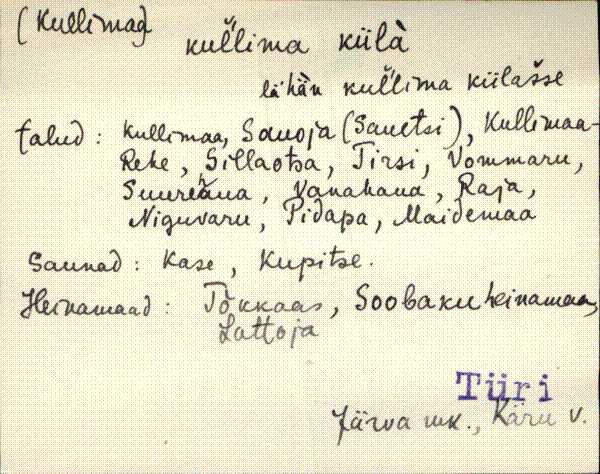 (Kullimaa)
kul̆lima külà
lähän kul̆lima külàsse
talud: Kullimaa, Sanoja (Sauetsi), Kullimaa-
Rehe, Sillaotsa, Tirsi, Vommaru,
Vanahaua, Raja,
Niguvaru, Pidapa, Maidemaa
Saunad: Kase, Kupitse.
Heinamaad: Tõkkaas, Soobaku heinamaa,
Lattoja
Türi
Järva mk., Käru v.